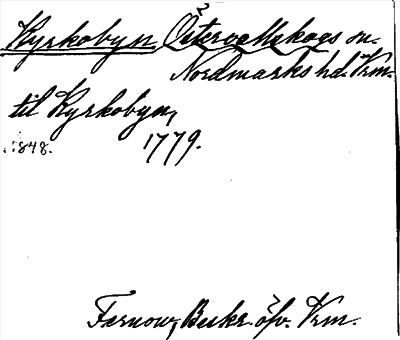 Kyrkobyn, Östervallskogs sn.
Nordmarks hd. Vrm.
til Kyrkobyn,
1848. 1779.
Fernow, Beskr. öfv. Vrm.